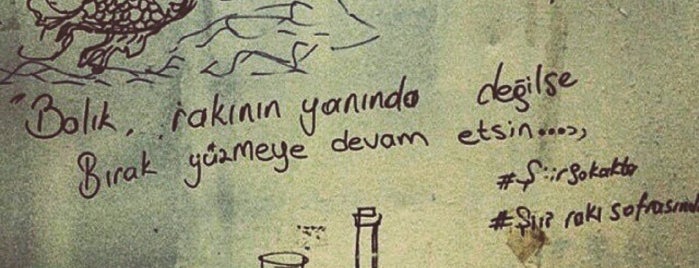 "Balık, rakının yanında değilse
Bırak yüzmeye devam etsin....,,
#Şiirsokakta
#Şiir rakı sofrasında